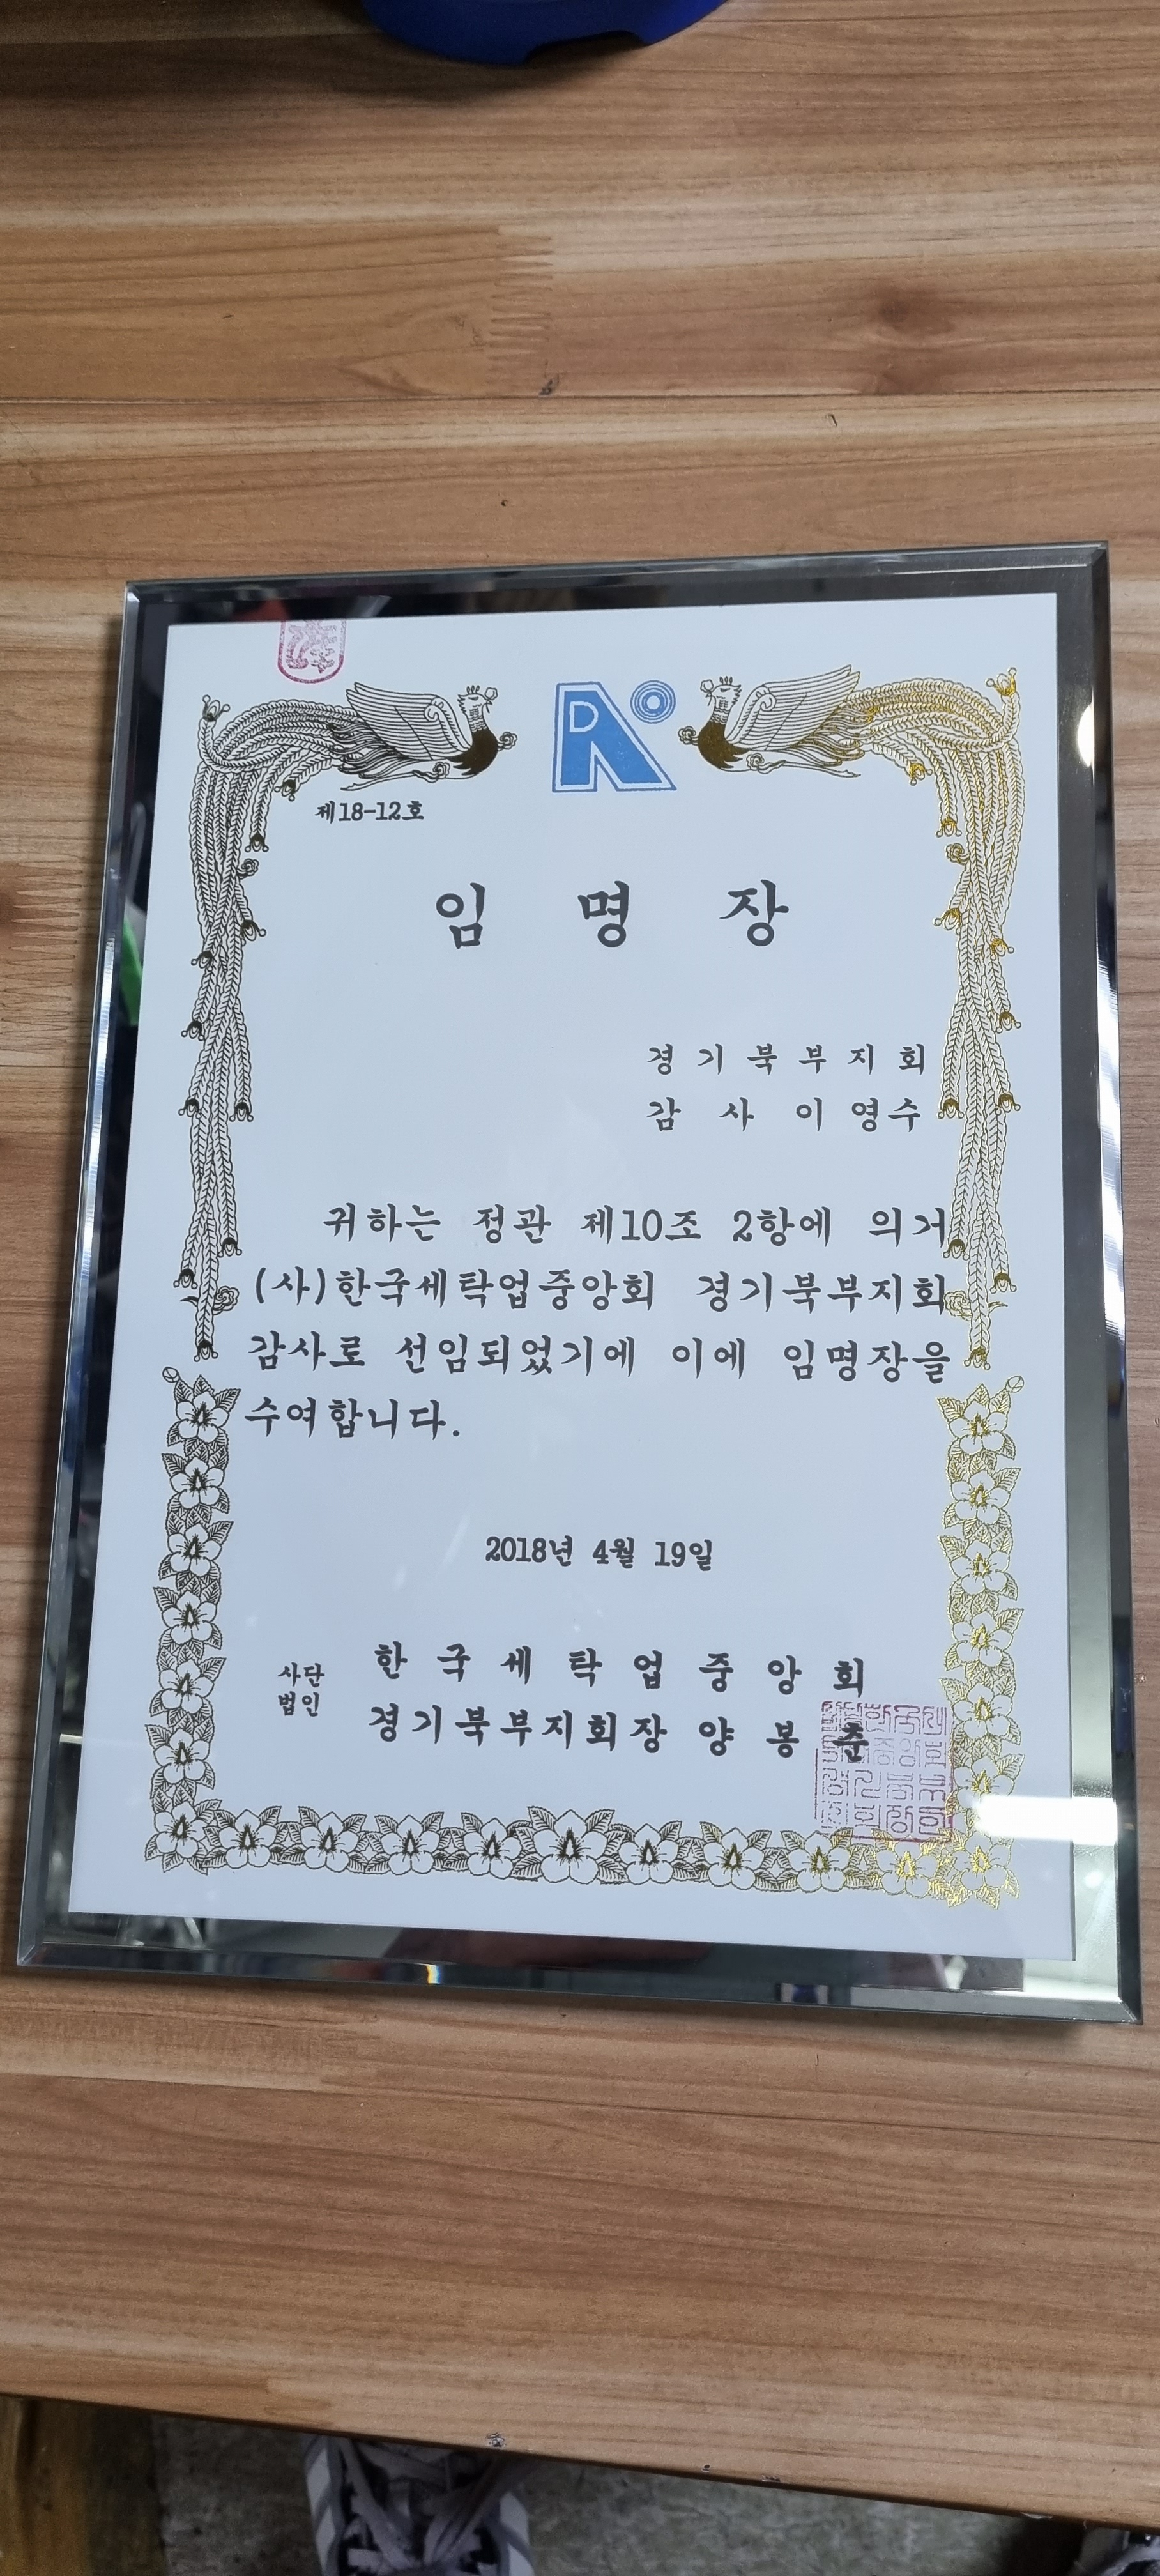 제18-12호
임 명 장
경 기 북 부 지 회
감 사 이 영수
귀하는 정관 제10조 2항에 의거
(사)한국세탁업중앙회 경기북부지회
감사로 선임되었기에 이에 임명장을
수여합니다.
2018년 4월 19일
사단법인 한 국 세 탁 업 중 앙 회
경기북부지회장 양 봉 춘